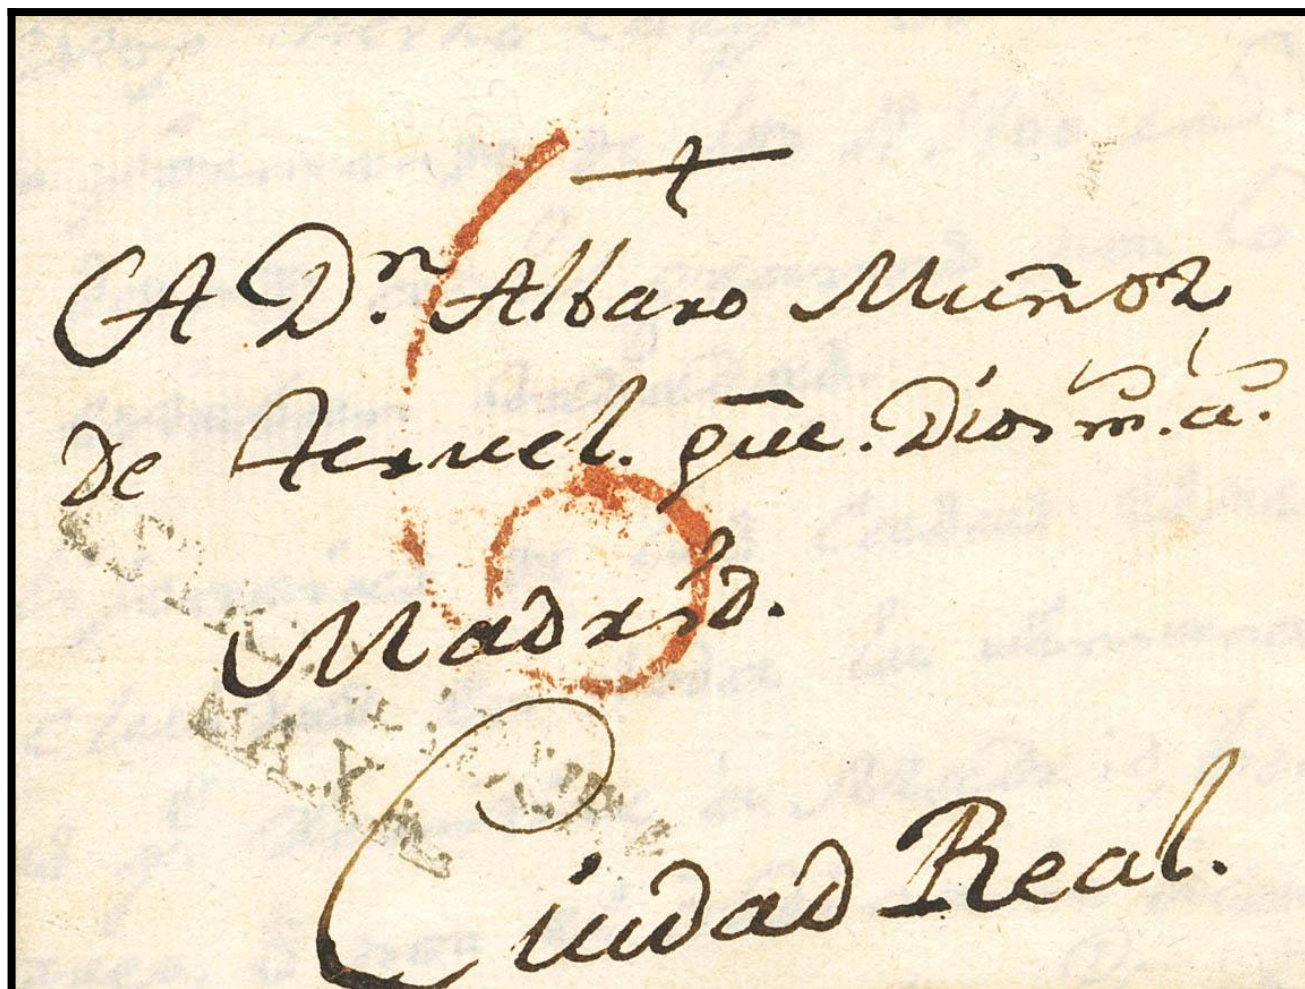 A Dn. Albaro Muñoz
De Teruel. gūe. Dios m̄. a̅.
Madrid.
Ciudad Real.